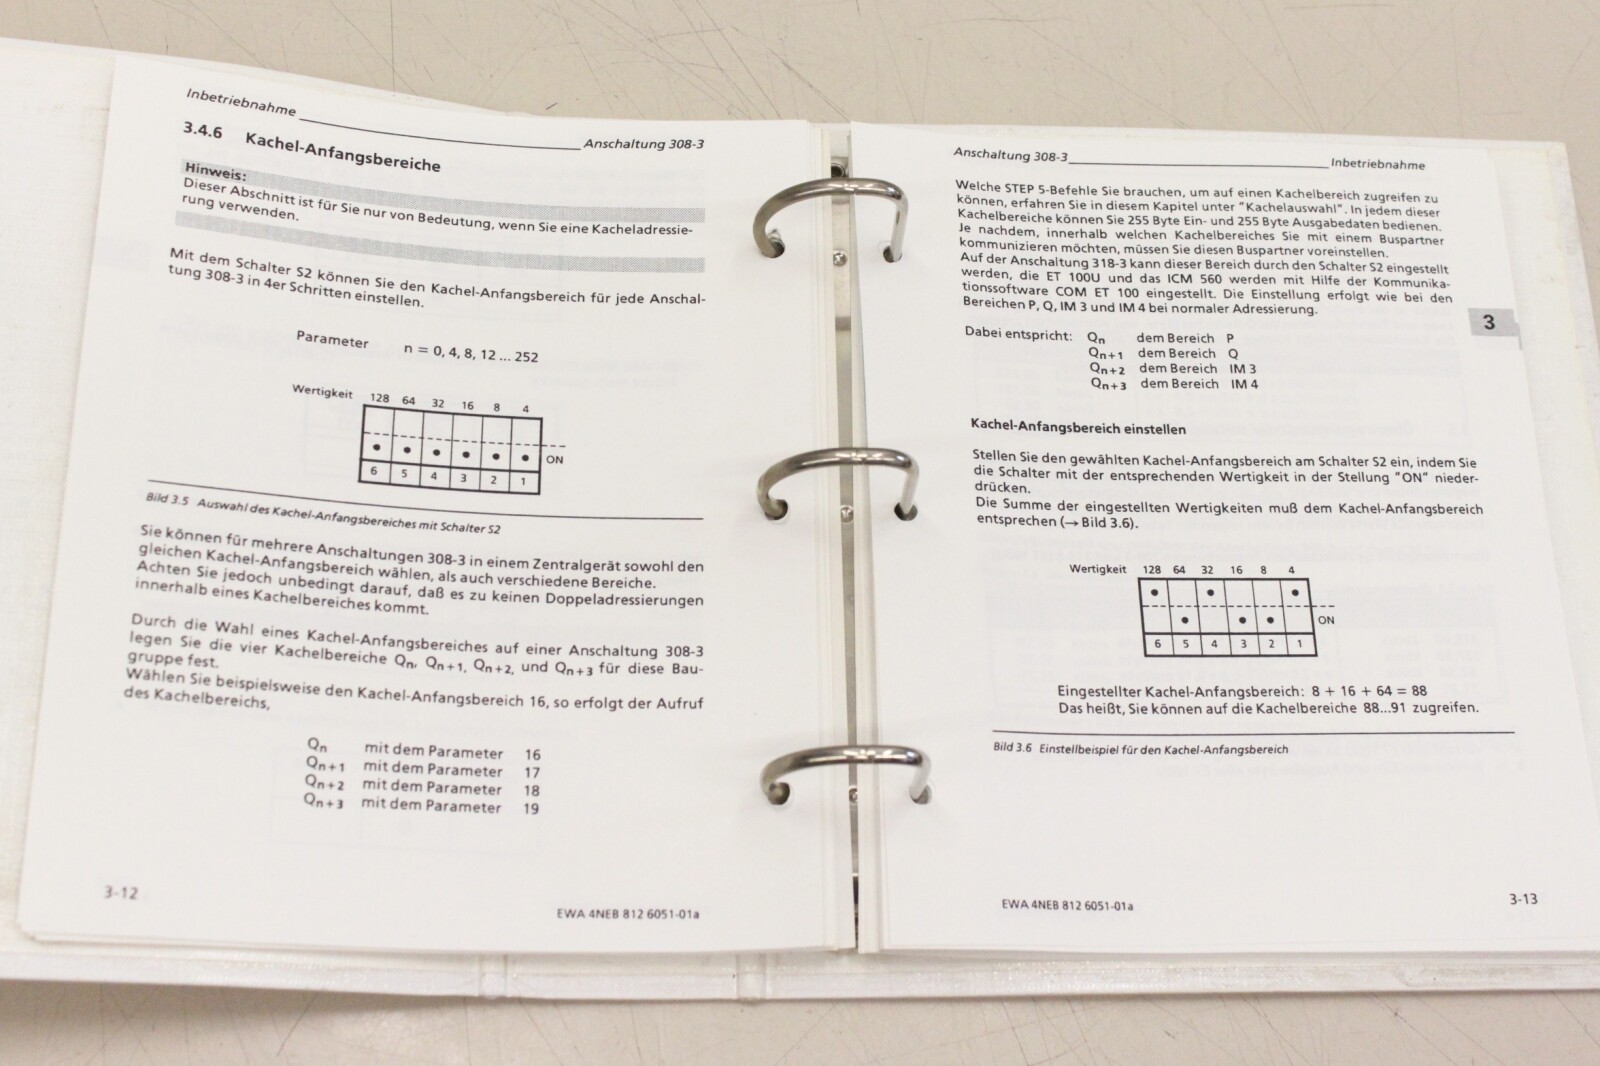 Inbetriebnahme
Anschaltung 308-3
3.4.6 Kachel-Anfangsbereiche
Hinweis:
Dieser Abschnitt ist für Sie nur von Bedeutung, wenn Sie eine Kacheladressie-
rung verwenden.
Mit dem Schalter S2 können Sie den Kachel-Anfangsbereich für jede Anschal-
tung 308-3 in 4er Schritten einstellen.
Parameter n = 0, 4, 8, 12 ... 252
Wertigkeit 128 64 32 16 8 4
ON
6 5 4 3 2 1
Bild 3.5 Auswahl des Kachel-Anfangsbereiches mit Schalter S2
Sie können für mehrere Anschaltungen 308-3 in einem Zentralgerät sowohl den
gleichen Kachel-Anfangsbereich wählen, als auch verschiedene Bereiche.
Achten Sie jedoch unbedingt darauf, daß es zu keinen Doppeladressierungen
innerhalb eines Kachelbereiches kommt.
Durch die Wahl eines Kachel-Anfangsbereiches auf einer Anschaltung 308-3
legen Sie die vier Kachelbereiche Qn, Qn+1, Qn+2, und Qn+3 für diese Bau-
gruppe fest.
Wählen Sie beispielsweise den Kachel-Anfangsbereich 16, so erfolgt der Aufruf
des Kachelbereichs,
Qn mit dem Parameter 16
Qn+1 mit dem Parameter 17
Qn+2 mit dem Parameter 18
Qn+3 mit dem Parameter 19
3-12
EWA 4NEB 812 6051-01a
Anschaltung 308-3
Inbetriebnahme
Welche STEP 5-Befehle Sie brauchen, um auf einen Kachelbereich zugreifen zu
können, erfahren Sie in diesem Kapitel unter "Kachelauswahl". In jedem dieser
Kachelbereiche können Sie 255 Byte Ein- und 255 Byte Ausgabedaten bedienen.
Je nachdem, innerhalb welchen Kachelbereiches Sie mit einem Buspartner
kommunizieren möchten, müssen Sie diesen Buspartner voreinstellen.
Auf der Anschaltung 318-3 kann dieser Bereich durch den Schalter S2 eingestellt
werden, die ET 100U und das ICM 560 werden mit Hilfe der Kommunika-
tionssoftware COM ET 100 eingestellt. Die Einstellung erfolgt wie bei den
Bereichen P, Q, IM 3 und IM 4 bei normaler Adressierung.
3
Dabei entspricht: Qn dem Bereich P
Qn+1 dem Bereich Q
Qn+2 dem Bereich IM 3
Qn+3 dem Bereich IM 4
Kachel-Anfangsbereich einstellen
Stellen Sie den gewählten Kachel-Anfangsbereich am Schalter S2 ein, indem Sie
die Schalter mit der entsprechenden Wertigkeit in der Stellung "ON" nieder-
drücken.
Die Summe der eingestellten Wertigkeiten muß dem Kachel-Anfangsbereich
entsprechen (→ Bild 3.6).
Wertigkeit 128 64 32 16 8 4
ON
6 5 4 3 2 1
Eingestellter Kachel-Anfangsbereich: 8 + 16 + 64 = 88
Das heißt, Sie können auf die Kachelbereiche 88...91 zugreifen.
Bild 3.6 Einstellbeispiel für den Kachel-Anfangsbereich
EWA 4NEB 812 6051-01a
3-13